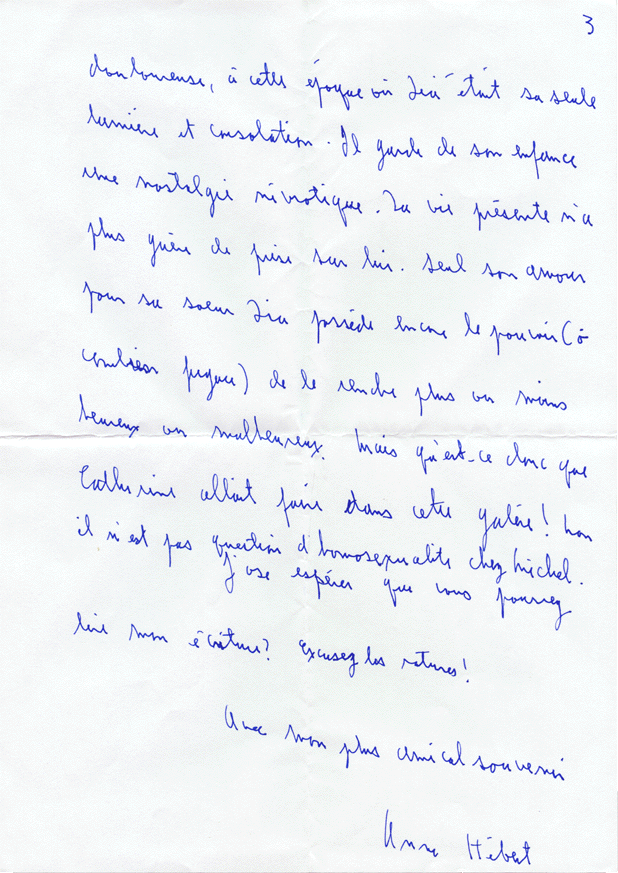 3
douloureuse, à cette époque où Lia était sa seule
lumière et consolation. Il garde de son enfance
une nostalgie névrotique. La vie présente n'a
plus guère de prise sur lui. Seul son amour
pour sa soeur Lia possède encore le pouvoir (ô
combien fugace) de le rendre plus ou moins
heureux ou malheureux. Mais qu'est-ce donc que
Catherine allait faire dans cette galère! Non
il n'est pas question d'homosexualité chez Michel.
J'ose espérer que vous pourrez
lire mon écriture? Excusez les ratures!
Avec mon plus amical souvenir
Anne Hébert